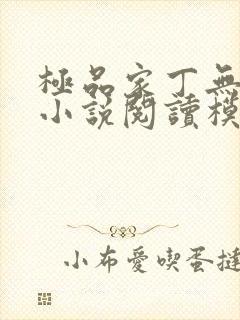 極品家丁無
小說閱讀模
小布愛喫蛋撻